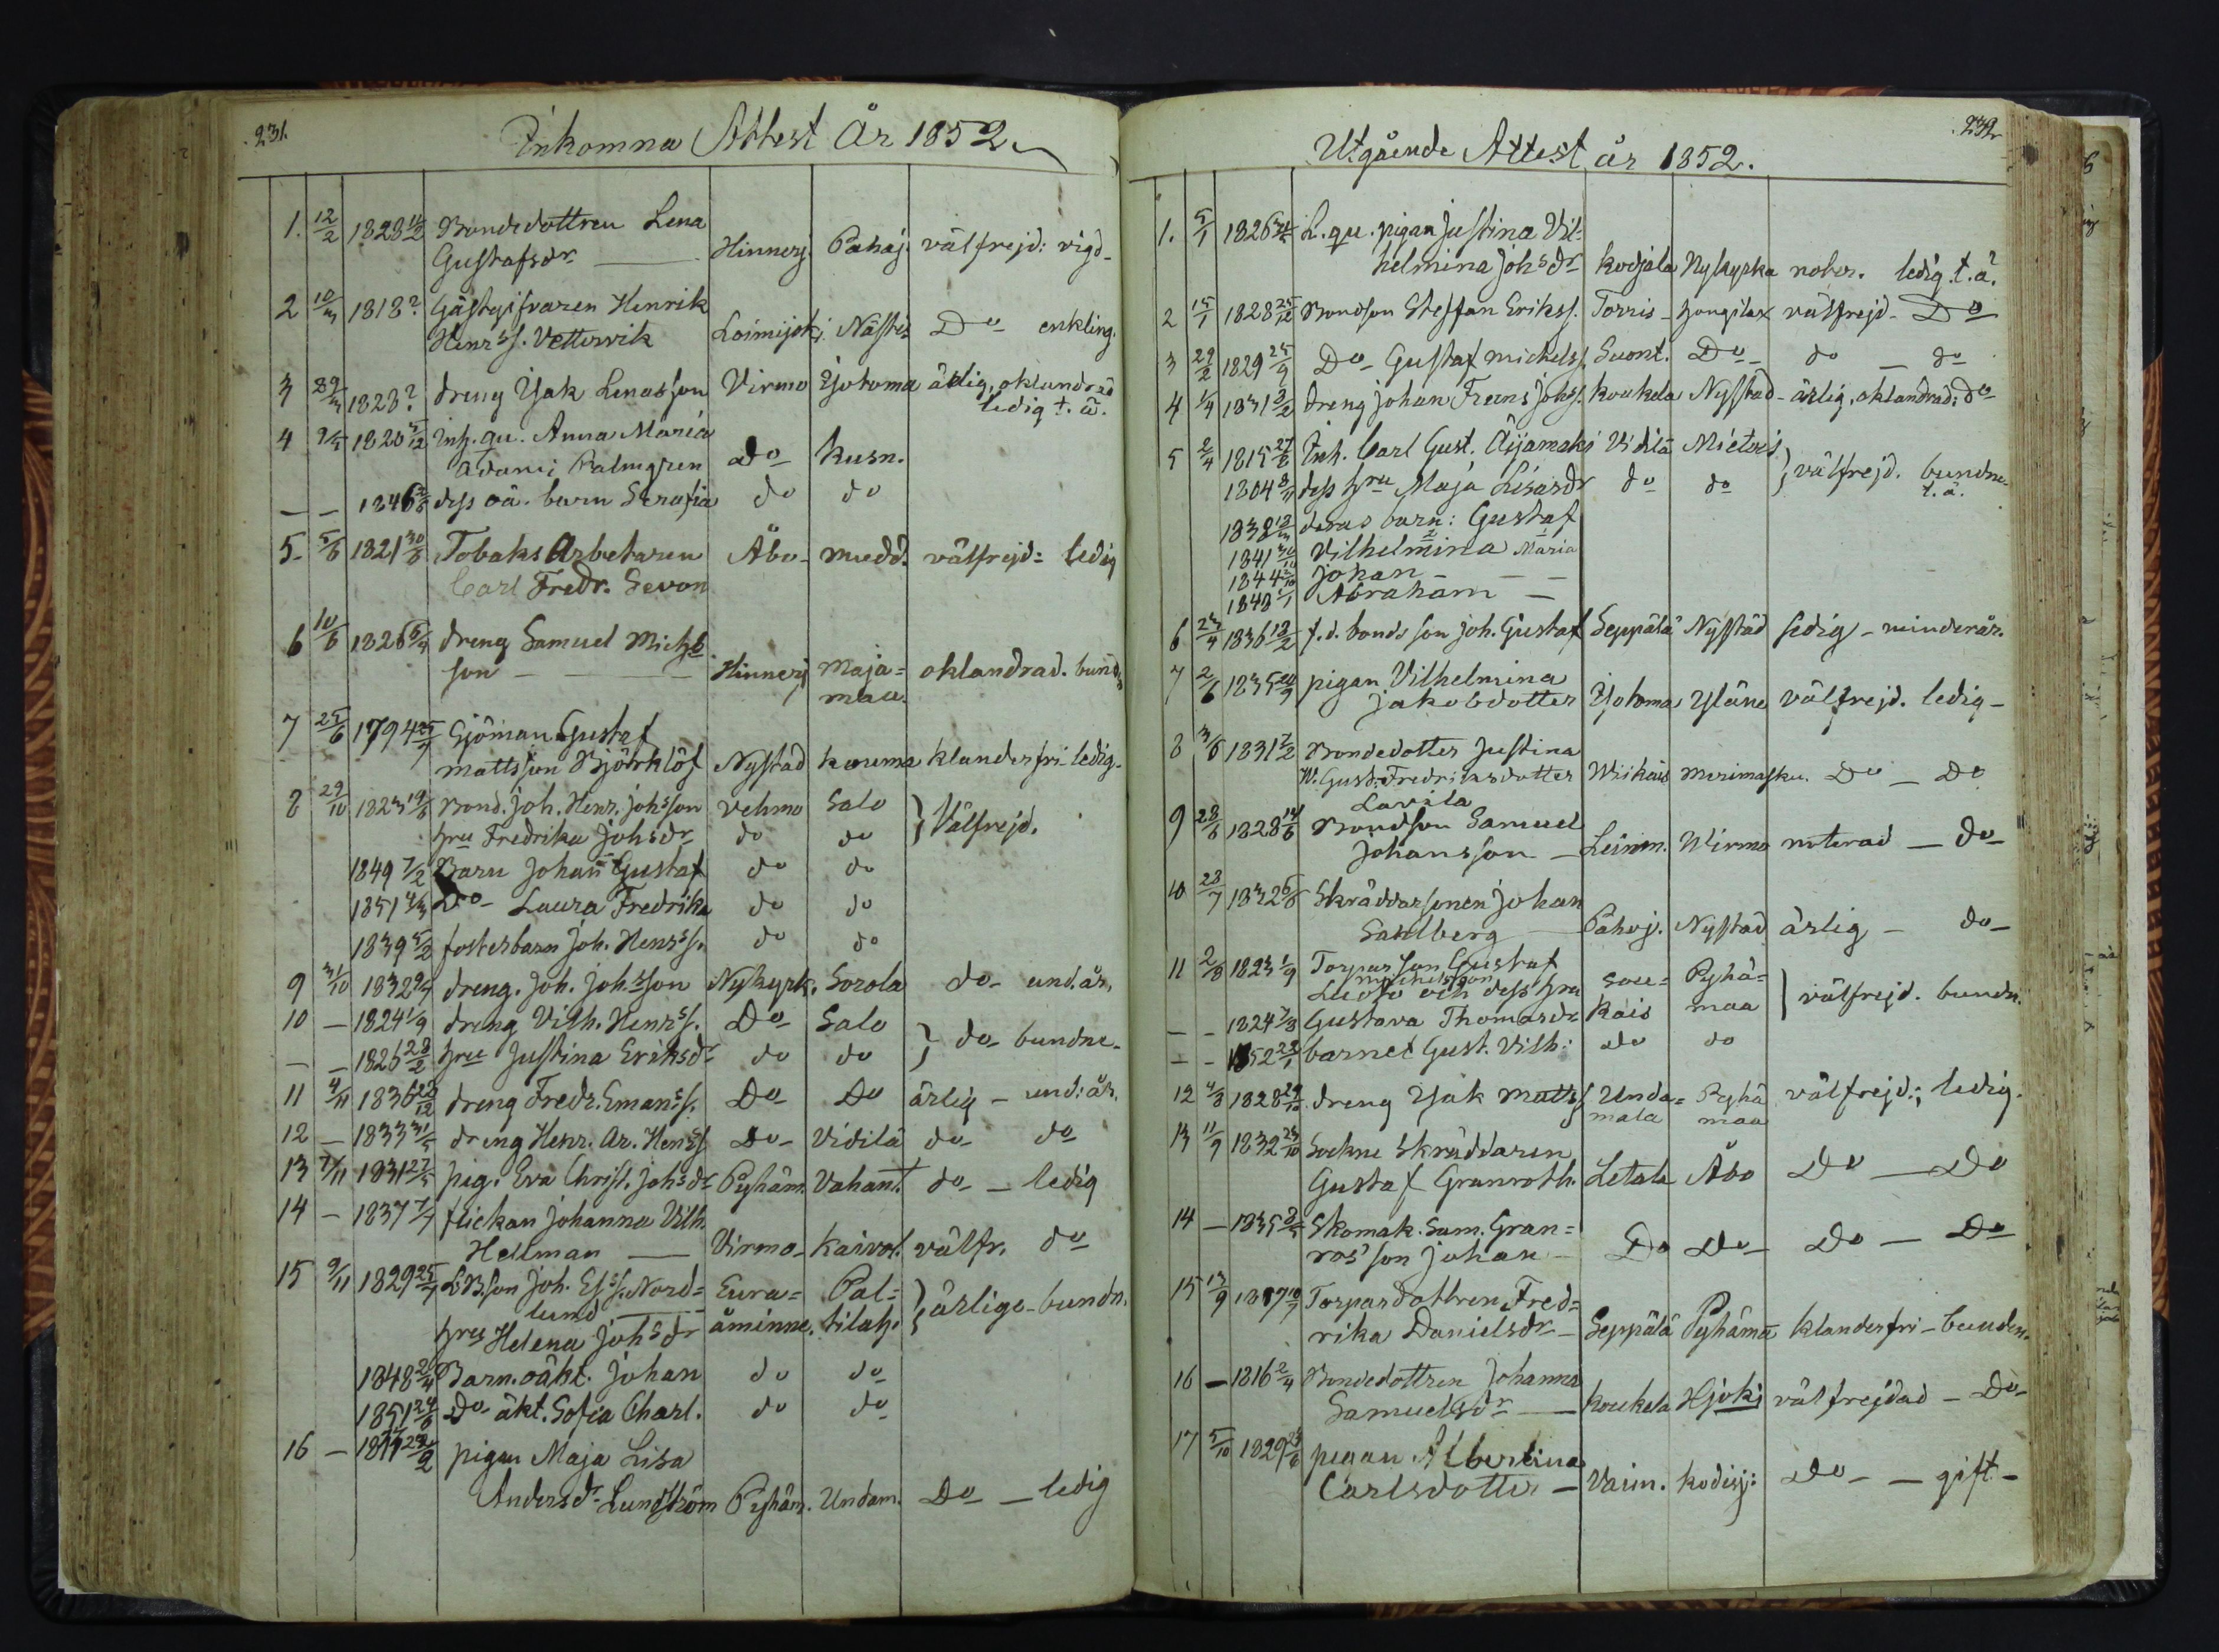 231.
Inkomna Attest År 1852
1. 12/2 1828 11/2 Bondedottren Lena
Gustafsdr Hinnerj. Pahaj. välfrejd: vigd
2 10/3 1818? Gästgifvaren Henrik
Henrss. Vettervik Loimijoki Nästis Do enkling.
3 29/3 1828? dreng Isak Lenasson Virmo Yotoma ärlig, oklandrad
ledig t. ä.
4 2/5 1820 5/12 Inh. qu. Anna Maria
Adami Palmgren do kusn.
— — 1846 dess oä. barn Serafia do do
5. 5/6 1821 30/8 Tobaks Arbetaren Åbo mudd. välfrejd: ledig
Carl Fredr. Sevon
6 10/6 1826 5/4 dreng Samuel Mich
son — Hinnerj Maja= oklandrad. bund
maa.
7 25/6 1794 25/7 Sjöman Gustaf
mattsson Björklöf Nystad kauma klanderfri ledig.
8 29/10 1823 19/8 Bond. Joh. Henr. Johsson Vehmo Salo } Välfrejd.
hru Fredrika Johsdr do do
1849 7/2 Barn Johan Gustaf do do
1851 4/3 Do Laura Fredrika do do
1839 5/2 fosterbarn Joh. Henrss. do do
9 31/10 1832 dreng. Joh. Johsson Nykyrk. Sorola do und. år.
10 — 1824 1/9 dreng Vilh. Henrss. Do Salo } do bundne.
— — 1826 28/2 hru Justina Eriksdr do do
11 4/11 1836 28/12 dreng Fredr. Emanss. Do Do ärlig — und: år.
12 — 1833 31/5 dreng Henr. Ar. Henrss Do Vidilä do do
13 7/11 1831 27/5 pig. Eva Christ. Johsdr Pyhäm. Vahant. do — ledig
14 — 1837 7/7 flickan Johanna Vilh.
Hellman — Virmo kaivol. välfr. do
15 9/11 1829 25/7 LB.son Joh. Ess. Nord= Eura= Pal= } ärliga bundn.
lund
hru Helena Johsdr åminne. tilah.
1848 2/4 Barn. oäkt. Johan do do
1851 24/6 Do äkt. Sofia Charl. do do
16 — pigan Maja Lisa
Andersdr Lundström Pyhäm. Undam. Do — ledig
232
Utgående Attest år 1852.
1. 5/1 1826 L. qu. pigan Justina Vil=
helmina Johsdr kodjala Nykyrka noter. ledig t. ä.
2 15/1 1828 25/12 Bondson Steffan Erikss. Torris hongilax välfrejd Do
3 29/2 1829 25/9 Do Gustaf mickelss. Suont. Do do — do
4 1/4 1831 dreng Johan Frans Johss. koukela Nystad ärlig, oklandrad: do
5 2/4 1815 27/8 Inh. Carl Gust. Äijämäki Vidilä Mietois } välfrejd. bundne
t. ä.
1804 dess hru Maja Lisasdr do do
1838 deras barn: Gustaf
1841 30/10 Vilhelmina Maria
1844 Johan — —
1848 Abraham —
6 23/4 1836 18/2 f. d. bonds son Joh. Gustaf Seppälä Nystad ledig — minderår.
7 2/6 1835 pigan Vilhelmina
Jakobdotter Yotoma Yläne välfrejd. ledig —
8 3/6 1831 7/2 Bondedotter Justina
W. Gust. Fredriksdotter Wiikais Merimasku. Do — Do
Lavila
9 28/6 1828 14/6 Bondson Samuel
Johansson — Leinm. Wirmo noterad — do
10 28/7 1832 Skräddarsonen Johan
Sahlberg Pahoj. Nystad ärlig — do
11 2/8 1823 1/9 Torpar. son Gustaf
michelsson
Luoto och dess hru Sou= Pyhä= } välfrejd. bundn.
— — 1824 7/8 Gustava Thomasdr kais maa
— — 1852 28/1 barnet Gust. Vilh: do do
12 4/8 1828 29/10 dreng Isak Matts Unda= Pyhä välfrejd:, ledig.
mala maa
13 11/9 1832 23/10 Sockne Skräddaren
Gustaf Granroth. Letala Åbo Do — Do
14 — 1835 Skomak. Sam. Gran=
ros' son Johan Do Do Do — Do
15 13/9 Torpardottren Fred=
rika Danielsdr Seppälä Pyhäma klanderfri — bunden.
16 — 1816 2/4 Bondedottren Johanna
Samuelsdr — koukela Hjoki välfrejdad — Do
17 5/10 1829 pigan Albertina
Carlsdotter — Varin. kodisj: Do — gift —